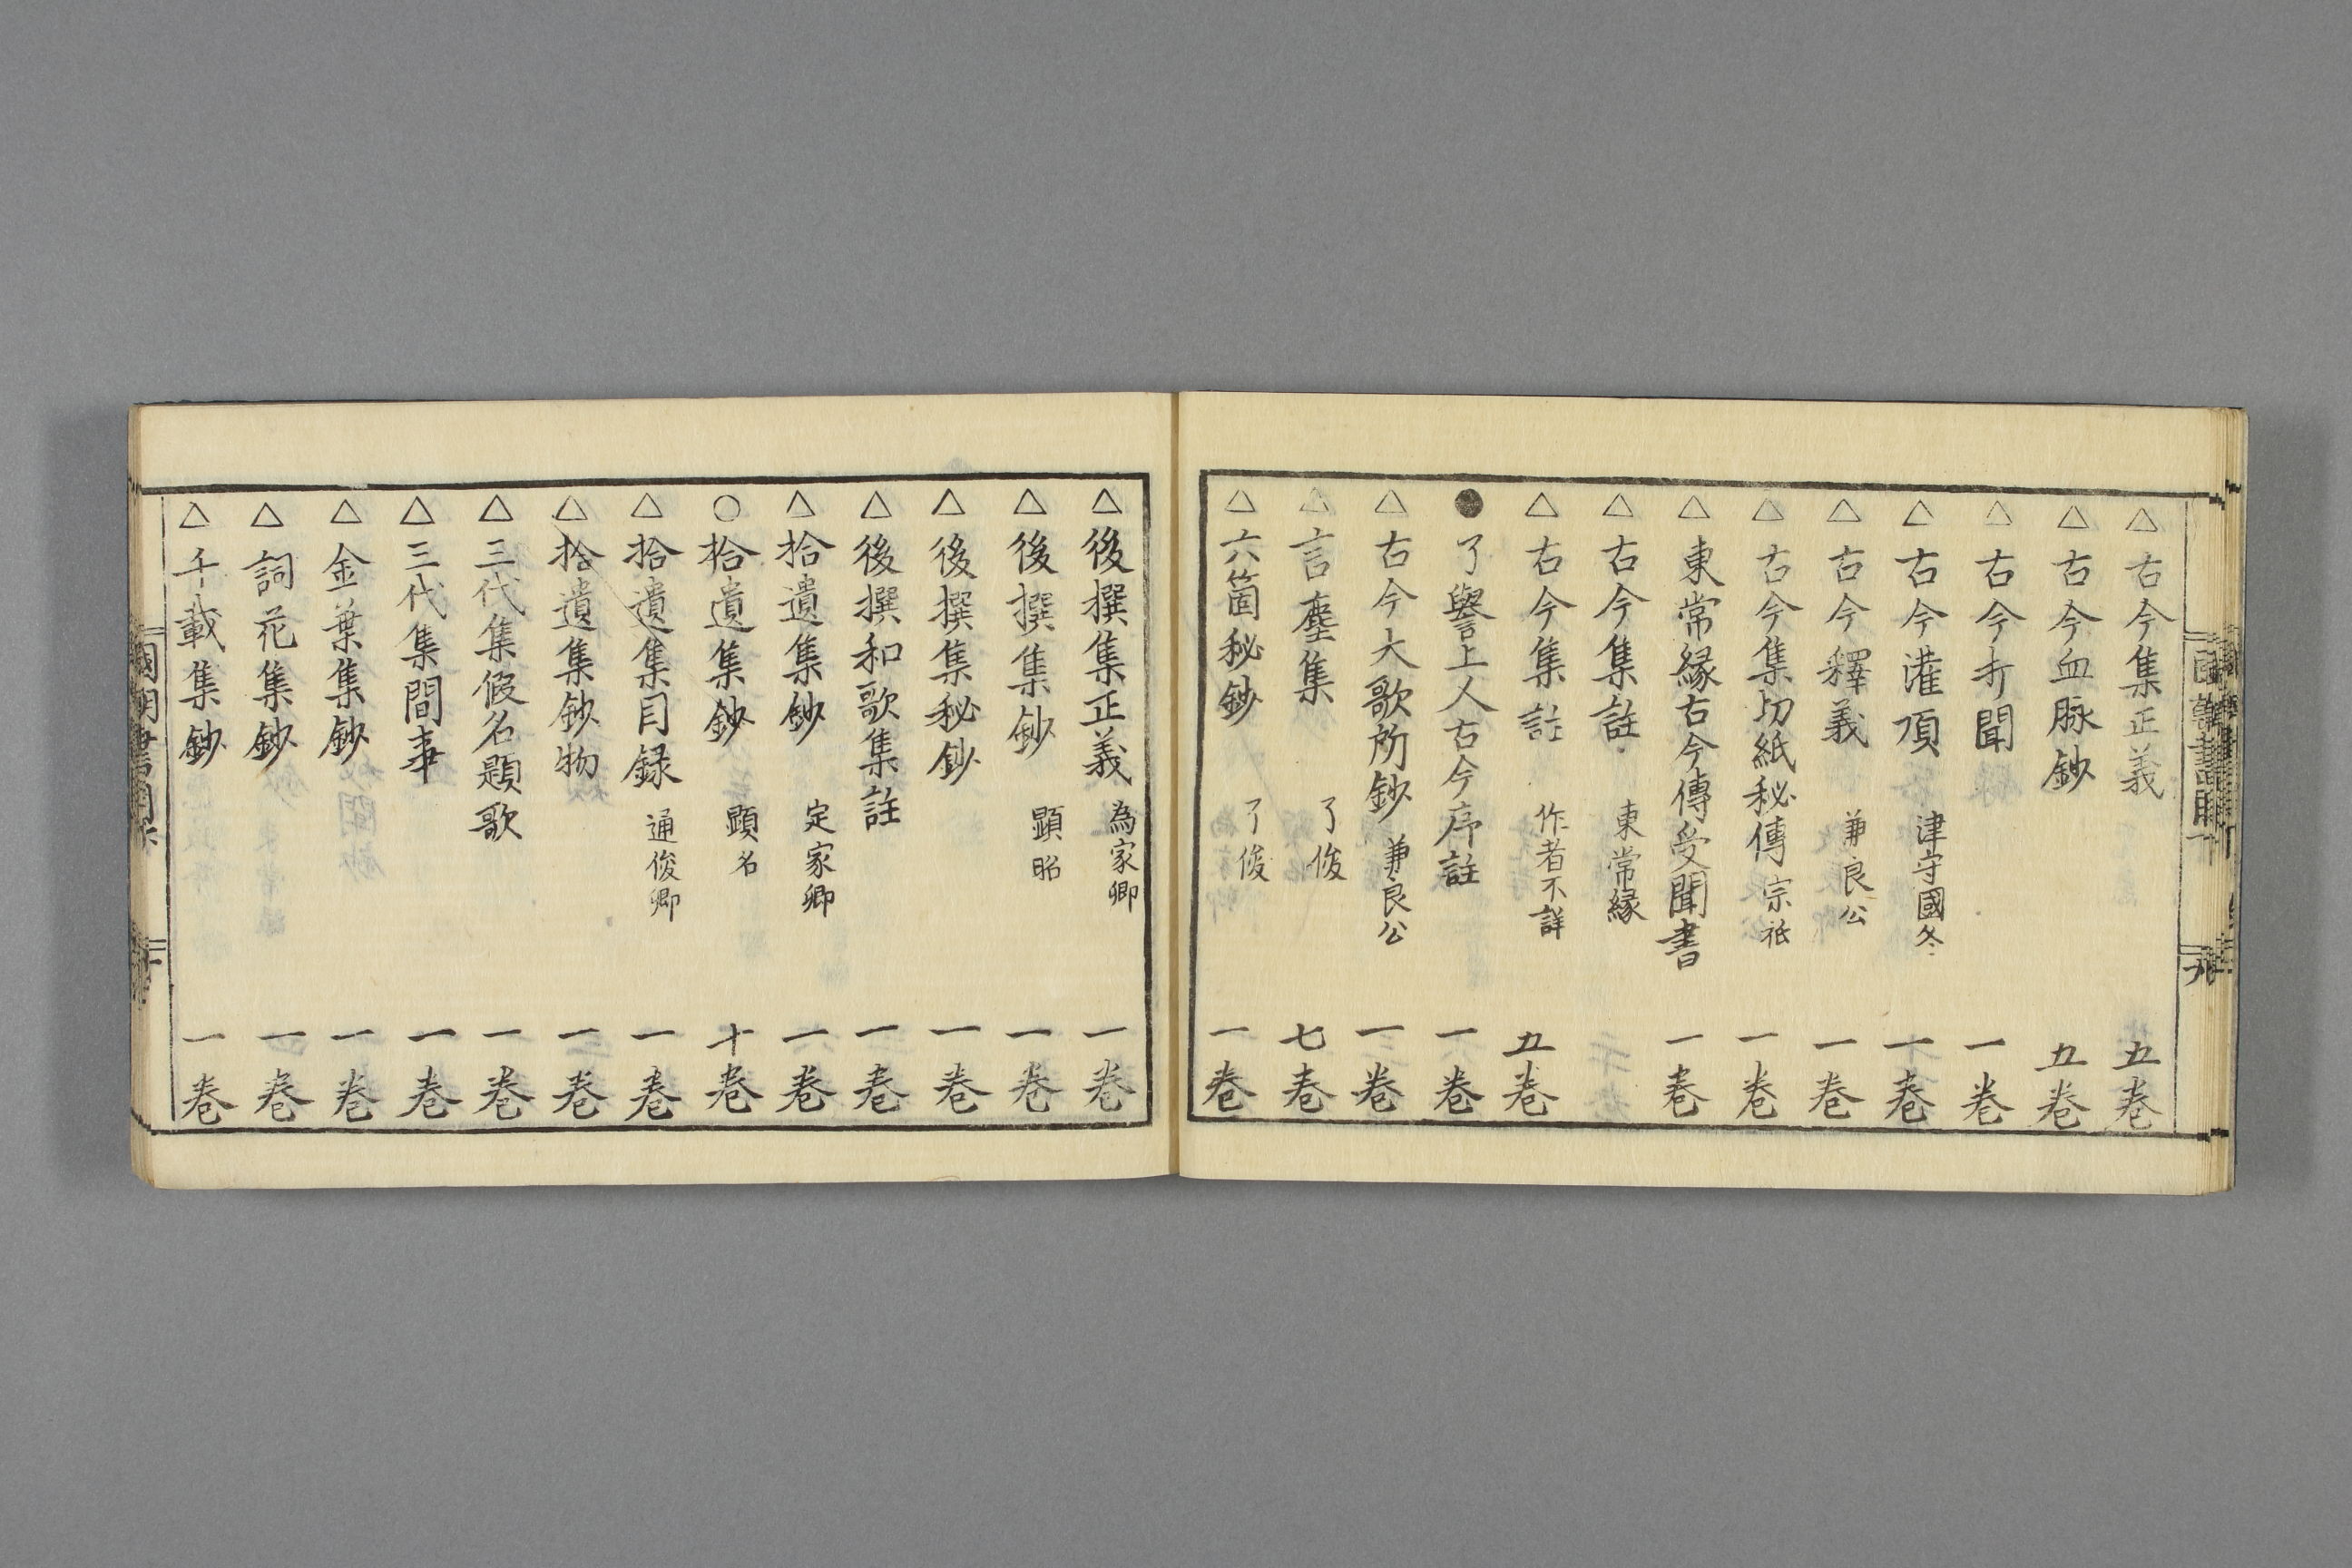 △古今集正義 五巻
△古今血脉鈔 五巻
△古今打聞 一巻
△古今灌頂 津守國冬 一巻
△古今釋義 兼良公 一巻
△古今集切紙秘傳 宗祇 一巻
△東常縁古今傳受聞書 一巻
△古今集註 東常縁
△古今集註 作者不詳 五巻
●了譽上人古今序註 一巻
△古今大歌所鈔 兼良公 一巻
△言塵集 了俊 七巻
△六箇秘鈔 了俊 一巻
△後撰集正義 為家卿 一巻
△後撰集鈔 顕昭 一巻
△後撰集秘鈔 一巻
△後撰和歌集註 一巻
△拾遺集鈔 定家卿 一巻
○拾遺集鈔 顕名 十巻
△拾遺集目録 通俊卿 一巻
△拾遺集鈔物 一巻
△三代集假名題歌 一巻
△三代集間事 一巻
△金葉集鈔 一巻
△詞花集鈔 一巻
△千載集鈔 一巻